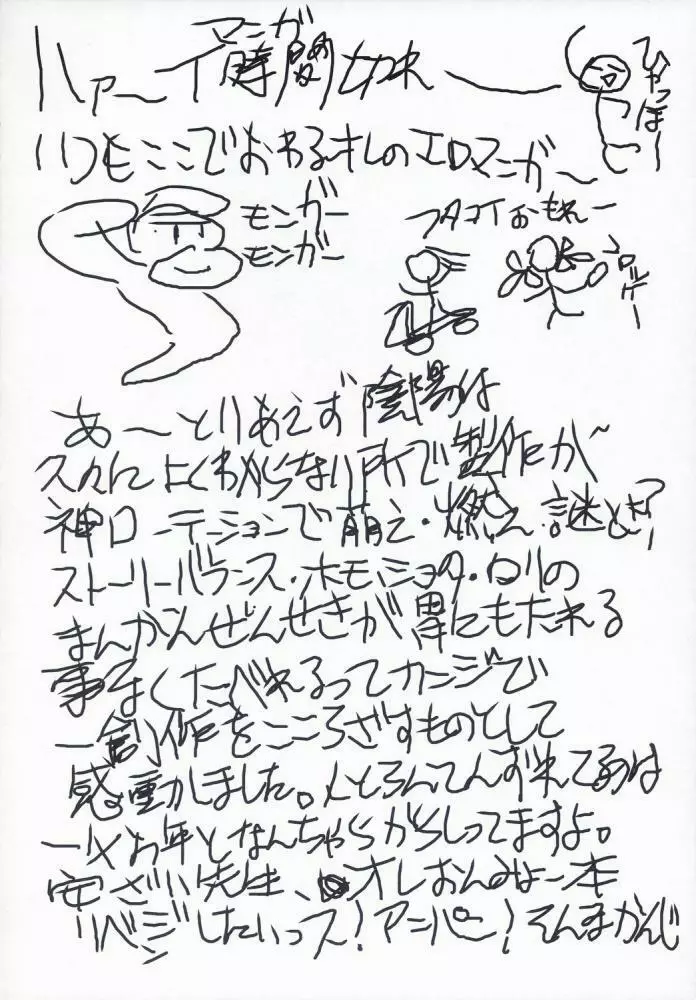 マニガ
ハァーイ 時間
ひゃっほー
いつもここでおわるオレのエロマニガ〜
モンガー
モンガー
フタコイおもれー
あーとりあえず陰陽は
久々によくわからない所で製作が
神ローテーションで萌え・燃え・謎とき?
ストーリーバランス・ホモ・ショタ・ロリの
まんかんぜんせきが胃にもたれる
事なくたべれるってカンジで
一創作をこころざすものとして
感動しました。
お年となんちゃらがらしってますよ。
安ざい先生、オレおんみょー本
リベンジしたいっス!アニパー!そんなかんじ